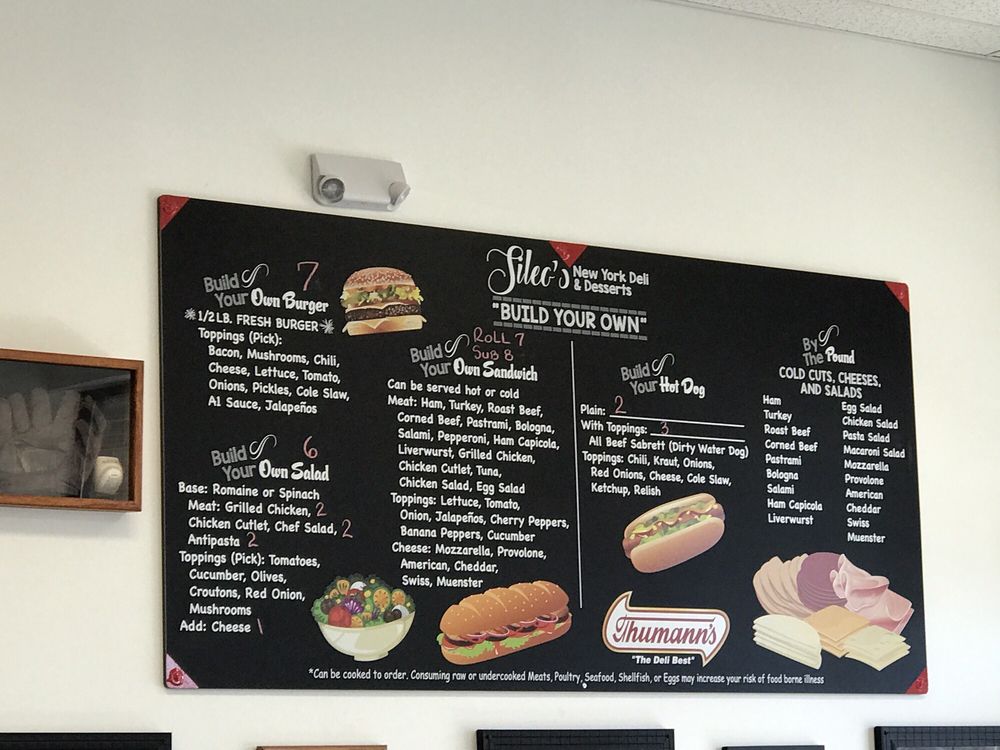 Silec's New York Deli
& Desserts
"BUILD YOUR OWN"
Build 7
Your Own Burger
*1/2 LB. FRESH BURGER*
Toppings (Pick):
Bacon, Mushrooms, Chili,
Cheese, Lettuce, Tomato,
Onions, Pickles, Cole Slaw,
A1 Sauce, Jalapeños
Build 6
Your Own Salad
Base: Romaine or Spinach
Meat: Grilled Chicken, 2
Chicken Cutlet, Chef Salad, 2
Antipasta 2
Toppings (Pick): Tomatoes,
Cucumber, Olives,
Croutons, Red Onion,
Mushrooms
Add: Cheese 1
Roll 7
Sub 8
Build
Your Own Sandwich
Can be served hot or cold
Meat: Ham, Turkey, Roast Beef,
Corned Beef, Pastrami, Bologna,
Salami, Pepperoni, Ham Capicola,
Liverwurst, Grilled Chicken,
Chicken Cutlet, Tuna,
Chicken Salad, Egg Salad
Toppings: Lettuce, Tomato,
Onion, Jalapeños, Cherry Peppers,
Banana Peppers, Cucumber
Cheese: Mozzarella, Provolone,
American, Cheddar,
Swiss, Muenster
Build
Your Hot Dog
Plain: 2
With Toppings: 3
All Beef Sabrett (Dirty Water Dog)
Toppings: Chili, Kraut, Onions,
Red Onions, Cheese, Cole Slaw,
Ketchup, Relish
Thumann's
"The Deli Best"
By
The Pound
COLD CUTS, CHEESES,
AND SALADS
Ham
Turkey
Roast Beef
Corned Beef
Pastrami
Bologna
Salami
Ham Capicola
Liverwurst
Egg Salad
Chicken Salad
Pasta Salad
Macaroni Salad
Mozzarella
Provolone
American
Cheddar
Swiss
Muenster
*Can be cooked to order. Consuming raw or undercooked Meats, Poultry, Seafood, Shellfish, or Eggs may increase your risk of food borne illness